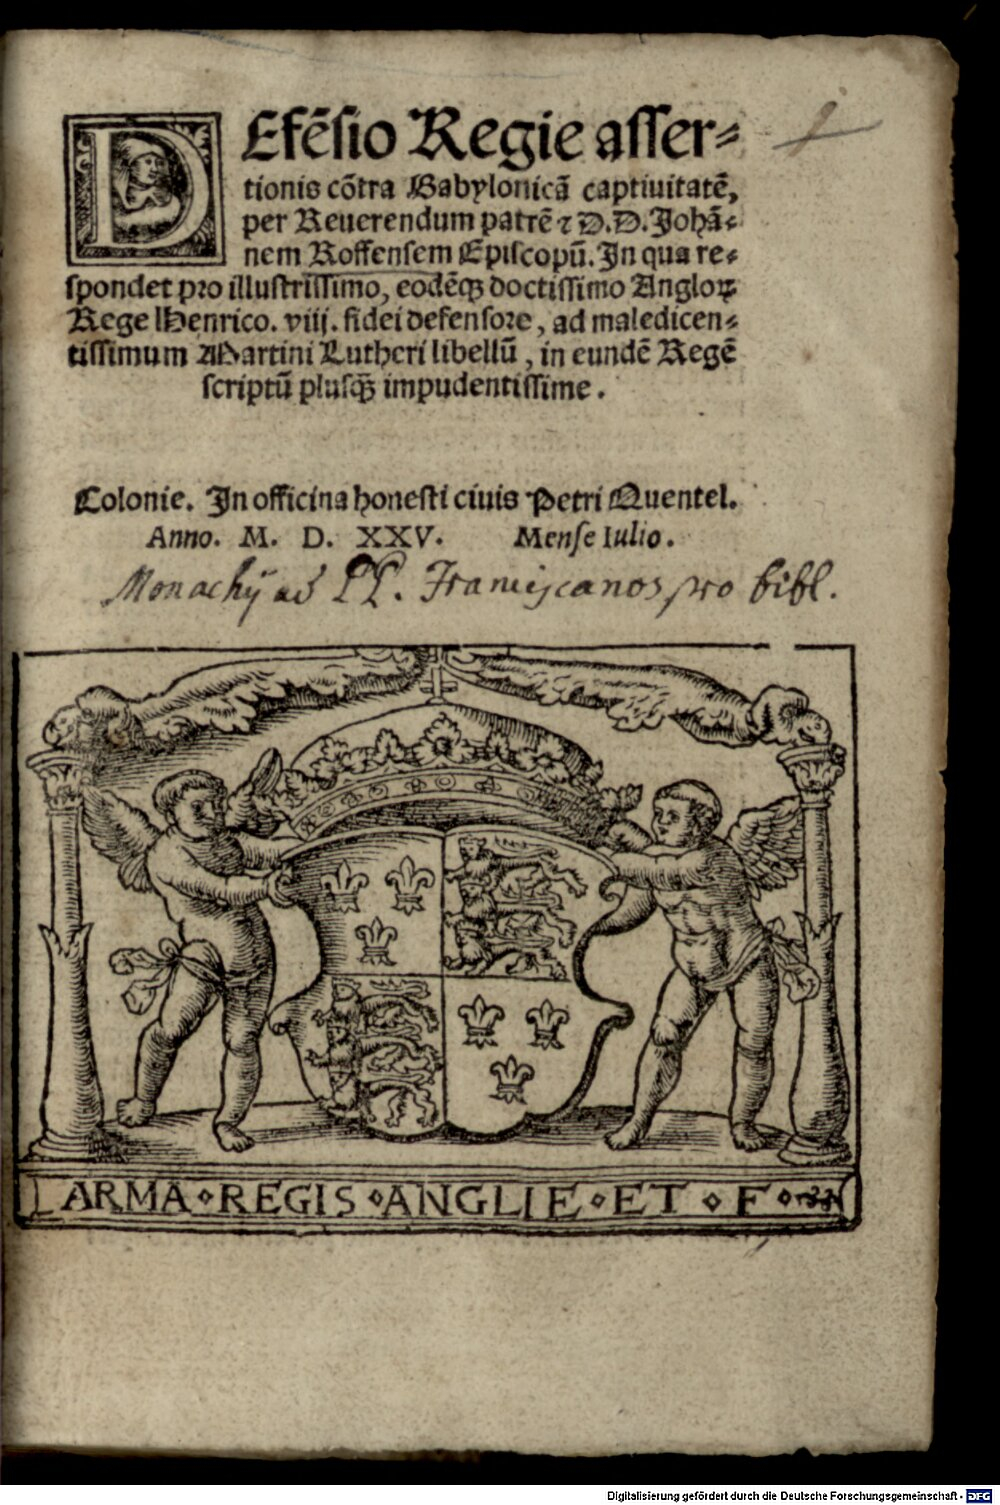 DEfẽsio Regie asser⸗
tionis cõtra Babylonicã captiuitatẽ,
per Reuerendum patrẽ ⁊ D.D. Johã⸗
nem Roffensem Episcopũ. In qua re⸗
spondet pro illustrissimo, eodẽq; doctissimo Angloꝝ
Rege Henrico. viij. fidei defensore, ad maledicen⸗
tissimum Martini Lutheri libellũ, in eundẽ Regẽ
scriptũ plusq̃ impudentissime.
Colonie. In officina honesti ciuis Petri Quentel.
Anno. M. D. XXV. Mense Iulio.
Monachij ad PP. Franciscanos pro bibl.
ARMA ⋄ REGIS ⋄ ANGLIE ⋄ ET ⋄ F ⋄
Digitalisierung gefördert durch die Deutsche Forschungsgemeinschaft - DFG